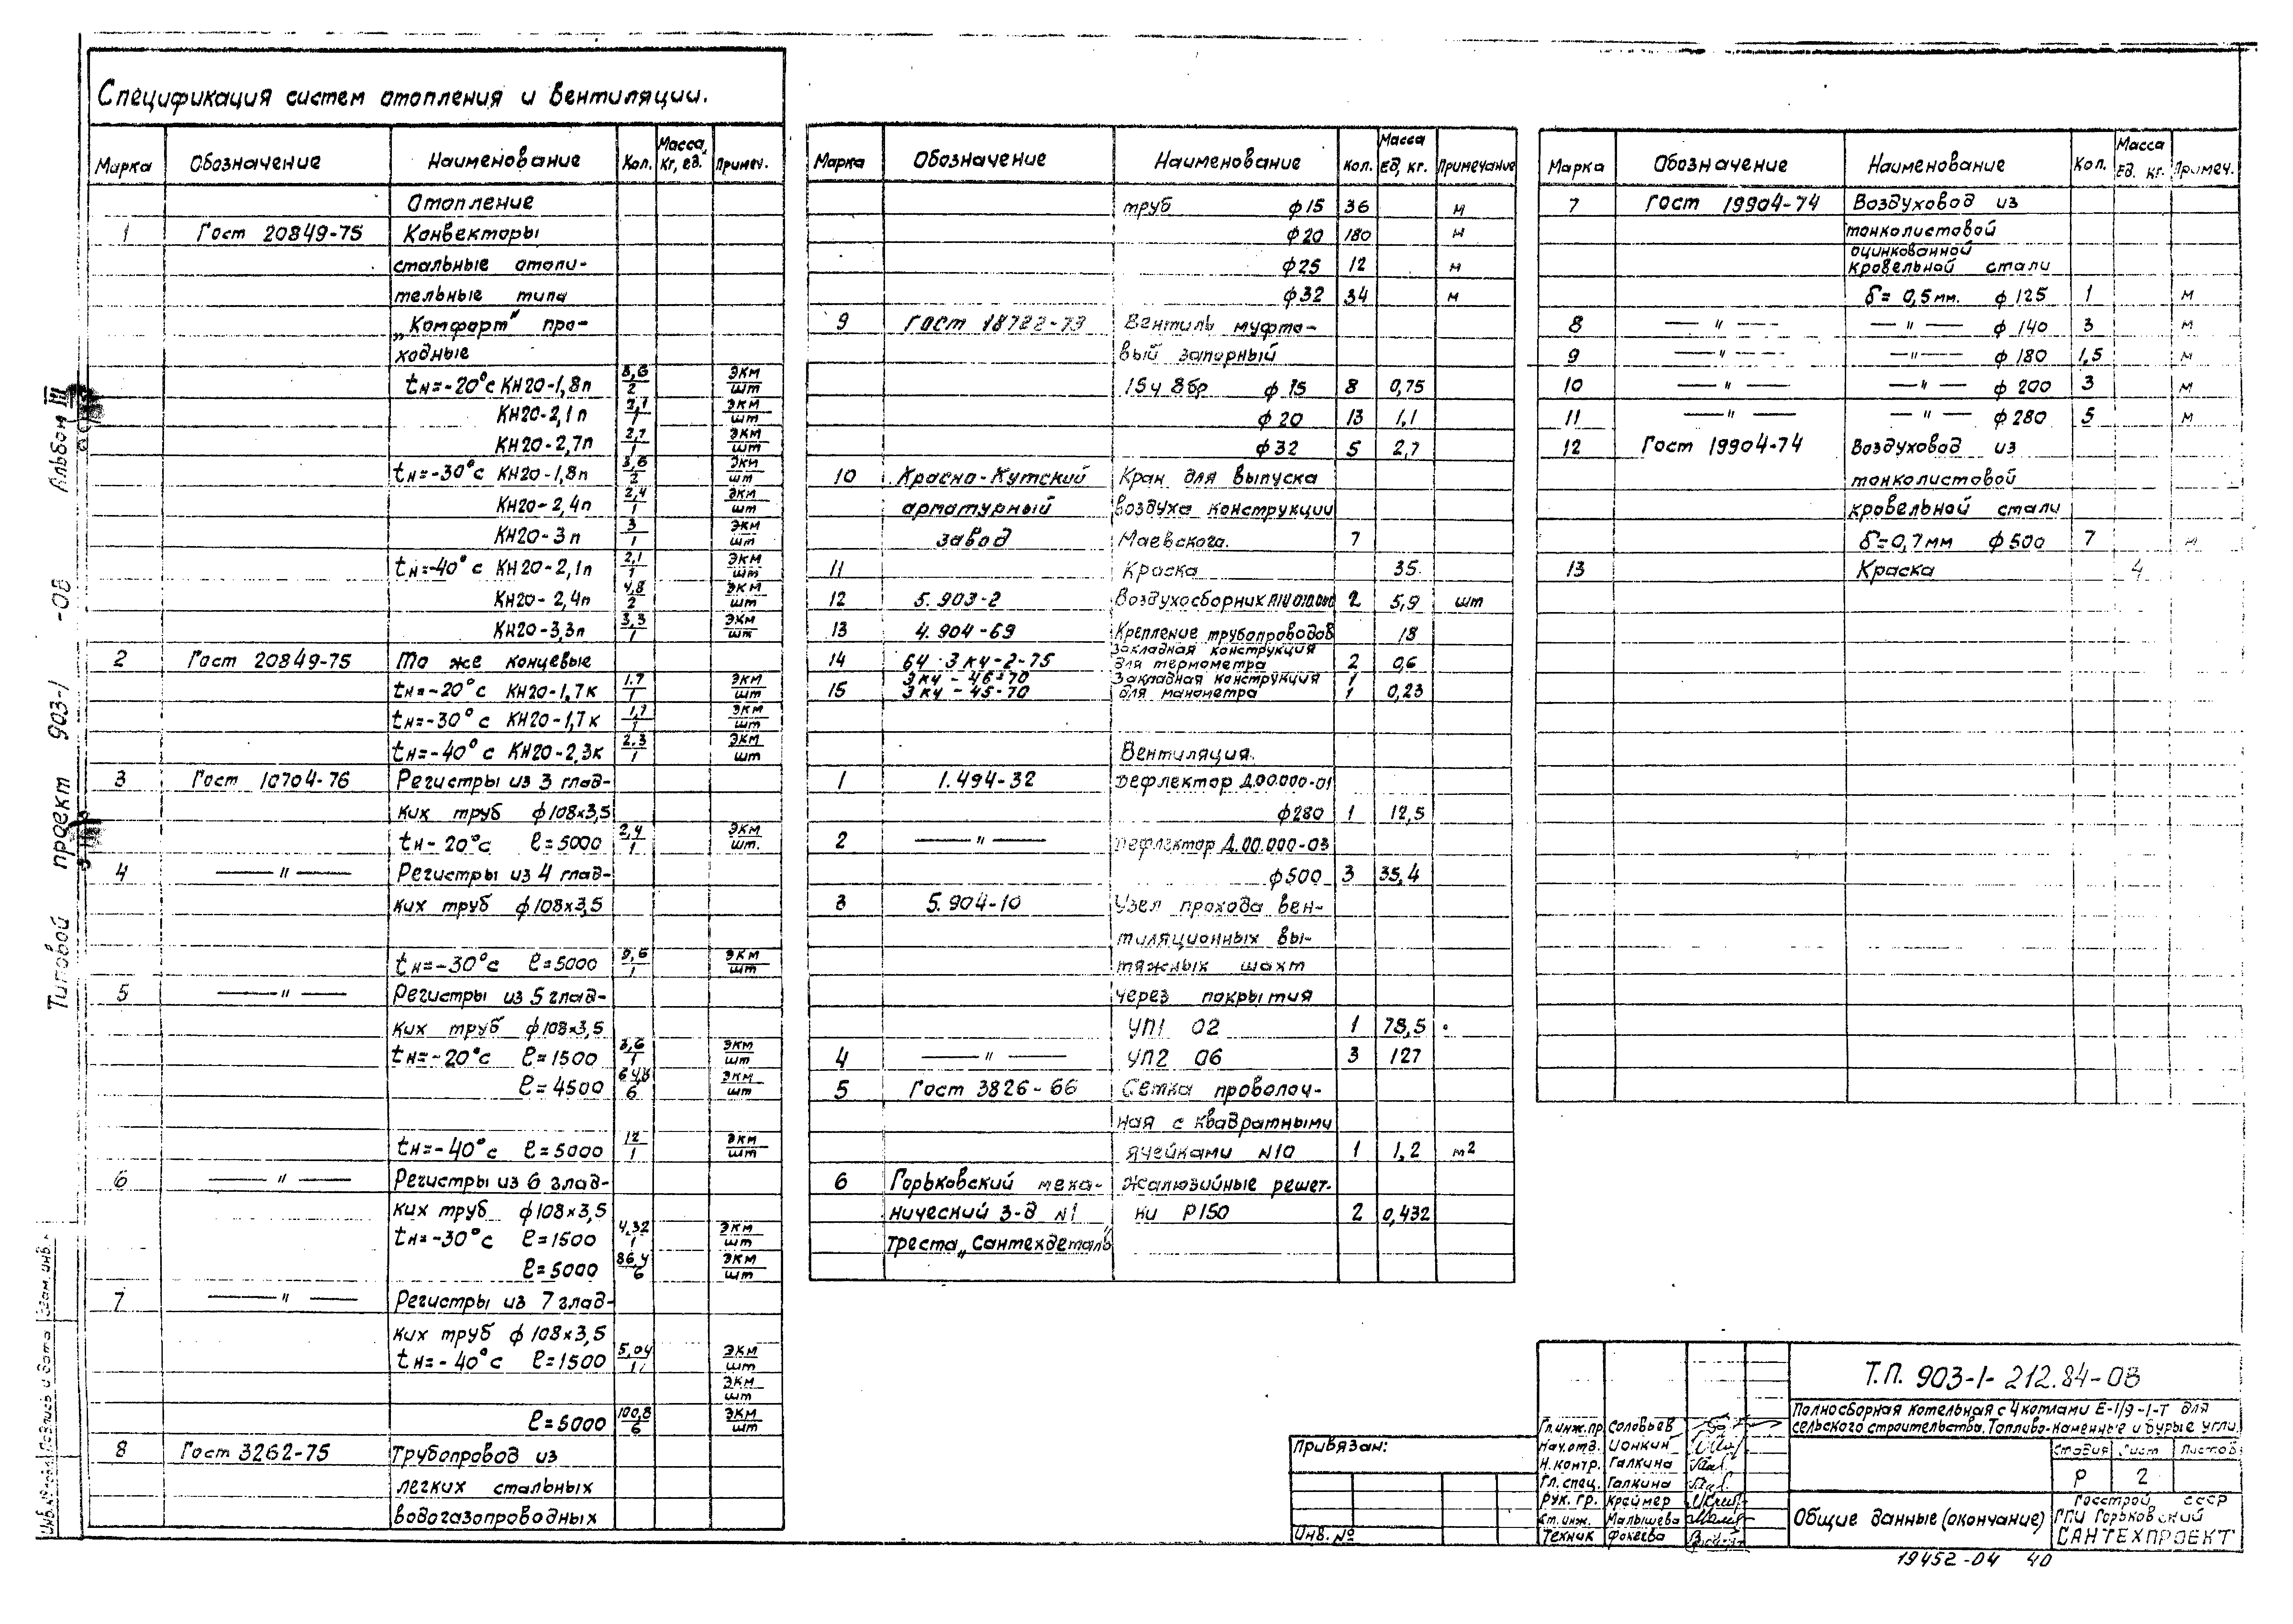 Спецификация систем отопления и вентиляции.
Марка Обозначение Наименование Кол. Масса, кг, ед. Примеч.
Отопление
1 Гост 20849-75 Конвекторы
стальные отопи-
тельные типа
„Комфорт" про-
ходные
tн=-20°с КН20-1,8п 3,6/2 экм/шт
КН20-2,1п 2,1/1 экм/шт
КН20-2,7п 2,7/1 экм/шт
tн=-30°с КН20-1,8п 3,6/2 экм/шт
КН20-2,4п 2,4/1 экм/шт
КН20-3п 3/1 экм/шт
tн=-40°с КН20-2,1п 2,1/1 экм/шт
КН20-2,4п 4,8/2 экм/шт
КН20-3,3п 3,3/1 экм/шт
2 Гост 20849-75 То же концевые
tн=-20°с КН20-1,7к 1.7/1 экм/шт
tн=-30°с КН20-1,7к 1,7/1 экм/шт
tн=-40°с КН20-2,3к 2.3/1 экм/шт
3 Гост 10704-76 Регистры из 3 глад-
ких труб ф108х3,5
tн-20°с ℓ=5000 2,4/1 экм/шт.
4 —〃— Регистры из 4 глад-
ких труб ф108х3,5
tн=-30°с ℓ=5000 9,6/1 экм/шт
5 —〃— Регистры из 5 глад-
ких труб ф108х3,5
tн=-20°с ℓ=1500 3,6/1 экм/шт
ℓ=4500 64,8/6 экм/шт
tн=-40°с ℓ=5000 12/1 экм/шт
6 —〃— Регистры из 6 глад-
ких труб ф108х3,5
tн=-30°с ℓ=1500 4,32/1 экм/шт
ℓ=5000 86,4/6 экм/шт
7 —〃— Регистры из 7 глад-
ких труб ф108х3,5
tн=-40°с ℓ=1500 5,04/1 экм/шт
экм/шт
ℓ=5000 100,8/6 экм/шт
8 Гост 3262-75 Трубопровод из
легких стальных
водогазопроводных
Марка Обозначение Наименование Кол. Масса ед, кг. Примечание
труб ф15 36 м
ф20 180 м
ф25 12 м
ф32 34 м
9 ГОСТ 18722-73 Вентиль муфто-
вый запорный
15ч 8бр ф15 8 0,75
ф20 13 1,1
ф32 5 2,7
10 Красно-Кутский Кран для выпуска
арматурный воздуха конструкции
завод Маевского. 7
11 Краска 35
12 5.903-2 Воздухосборник 2 5,9 шт
13 4.904-69 Крепление трубопроводов 18
14 64·ЗКЧ-2-75 Закладная конструкция для термометра 2 0,6
ЗКЧ-46-70 Закладная конструкция 1
15 ЗКЧ-45-70 для манометра 1 0,23
Вентиляция.
1 1.494-32 Дефлектор Д.00.000-01
ф280 1 12,5
2 —〃— Дефлектор Д.00.000-03
ф500 3 35,4
3 5.904-10 Узел прохода вен-
тиляционных вы-
тяжных шахт
через покрытия
УП1 02 1 78,5
4 —〃— УП2 06 3 127
5 Гост 3826-66 Сетка проволоч-
ная с квадратными
ячейками N10 1 1,2 м²
6 Горьковский меха- Жалюзийные решет-
нический з-д N1 ки Р150 2 0,432
треста „Сантехдеталь"
Марка Обозначение Наименование Кол. Масса ед. кг. Примеч.
7 Гост 19904-74 Воздуховод из
тонколистовой
оцинкованной
кровельной стали
δ=0,5мм. ф125 1 м
8 —〃— —〃— ф140 3 м
9 —〃— —〃— ф180 1,5 м
10 —〃— —〃— ф200 3 м
11 —〃— —〃— ф280 5 м
12 Гост 19904-74 Воздуховод из
тонколистовой
кровельной стали
δ=0,7мм ф500 7 м
13 Краска 4
Типовой проект 903-1 -ОВ Альбом III
Инв. № подл. Подпись и дата Взам. инв. №
Привязан:
Инв. №
Гл. инж. пр Соловьев
Нач. отд. Ионкин
Н. контр. Галкина
Гл. спец. Галкина
Рук. гр. Креймер
Ст. инж. Малышева
Техник Фокеева
Т.П. 903-1-212.84-ОВ
Полносборная котельная с 4 котлами Е-1/9-1-Т для
сельского строительства. Топливо-каменные и бурые угли.
Стадия Лист Листов
Р 2
Общие данные (окончание)
Госстрой СССР
ГПИ Горьковский
САНТЕХПРОЕКТ
19452-04 40